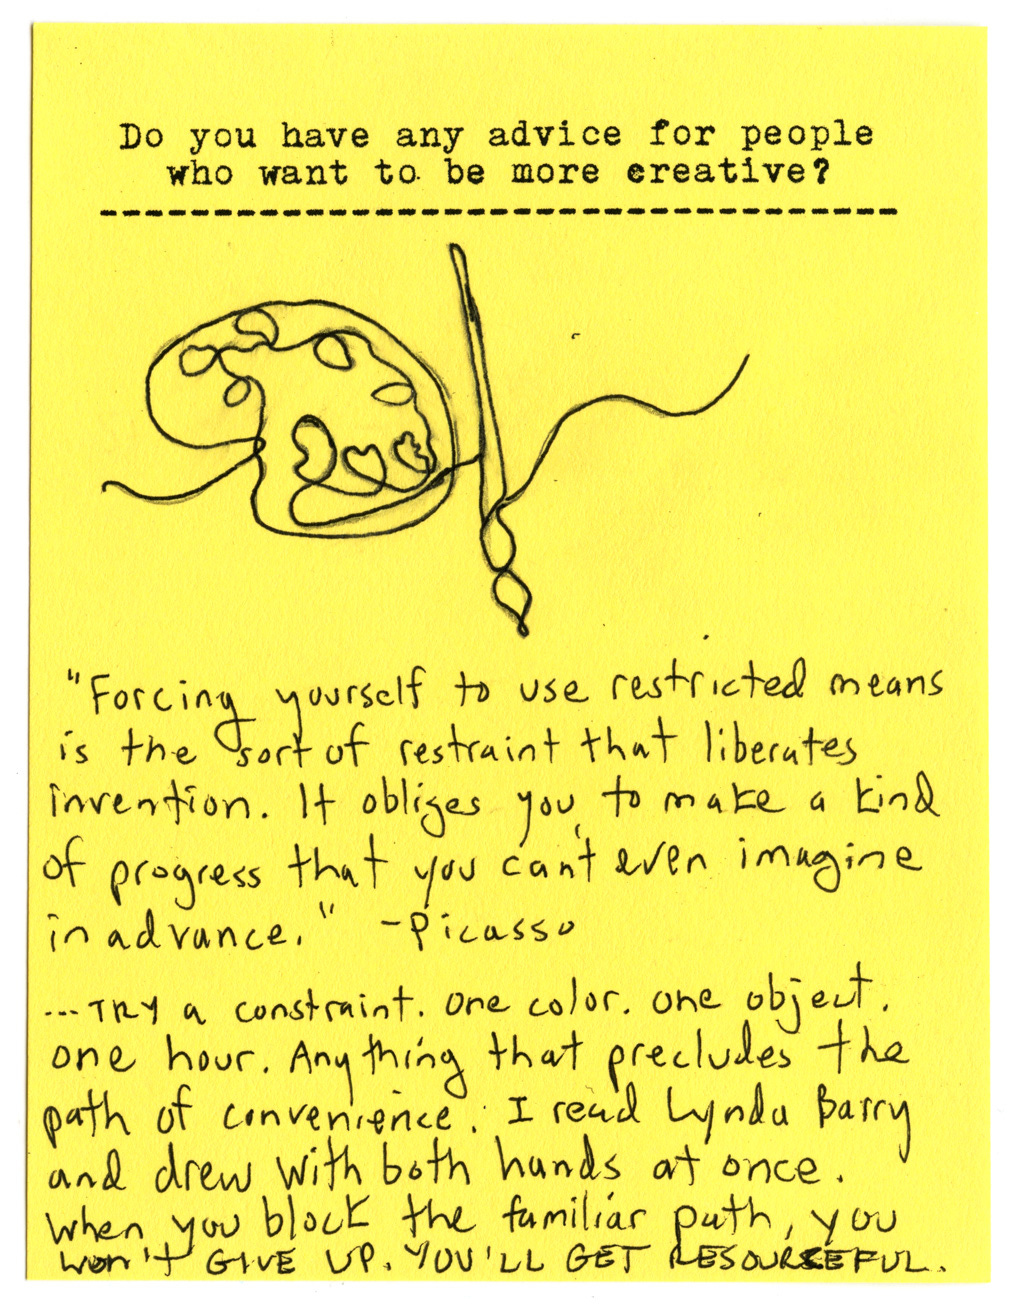 Do you have any advice for people
who want to be more creative?
"Forcing yourself to use restricted means
is the sort of restraint that liberates
invention. It obliges you to make a kind
of progress that you can't even imagine
in advance." -Picasso
...TRY a constraint. One color. One object.
One hour. Anything that precludes the
path of convenience. I read Lynda Barry
and drew with both hands at once.
When you block the familiar path, you
won't GIVE UP. YOU'LL GET RESOURCEFUL.